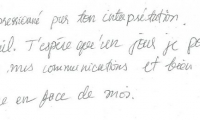 pressionné par ton interprétation.
il. J'espère qu'un jour je po
mes communications et bien
e en face de moi.